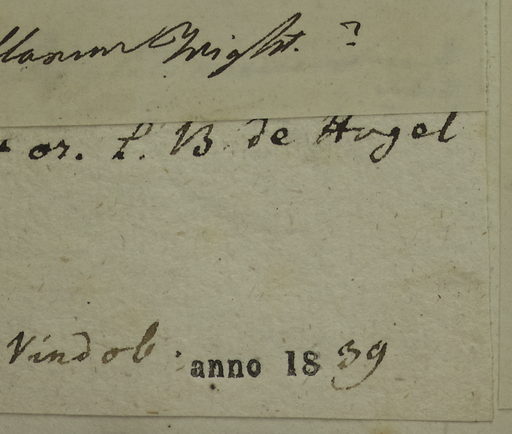 Wight. ?
or. l. B. de Hugel
Vindob. anno 1839